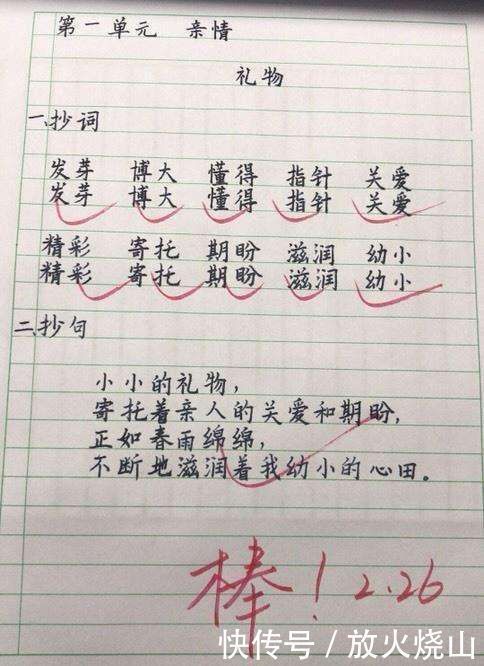 第一单元 亲情
礼物
一、抄词
发芽 博大 懂得 指针 关爱
发芽 博大 懂得 指针 关爱
精彩 寄托 期盼 滋润 幼小
精彩 寄托 期盼 滋润 幼小
二、抄句
小小的礼物，
寄托着亲人的关爱和期盼，
正如春雨绵绵，
不断地滋润着我幼小的心田。
棒！2.26
快传号 / 放火烧山